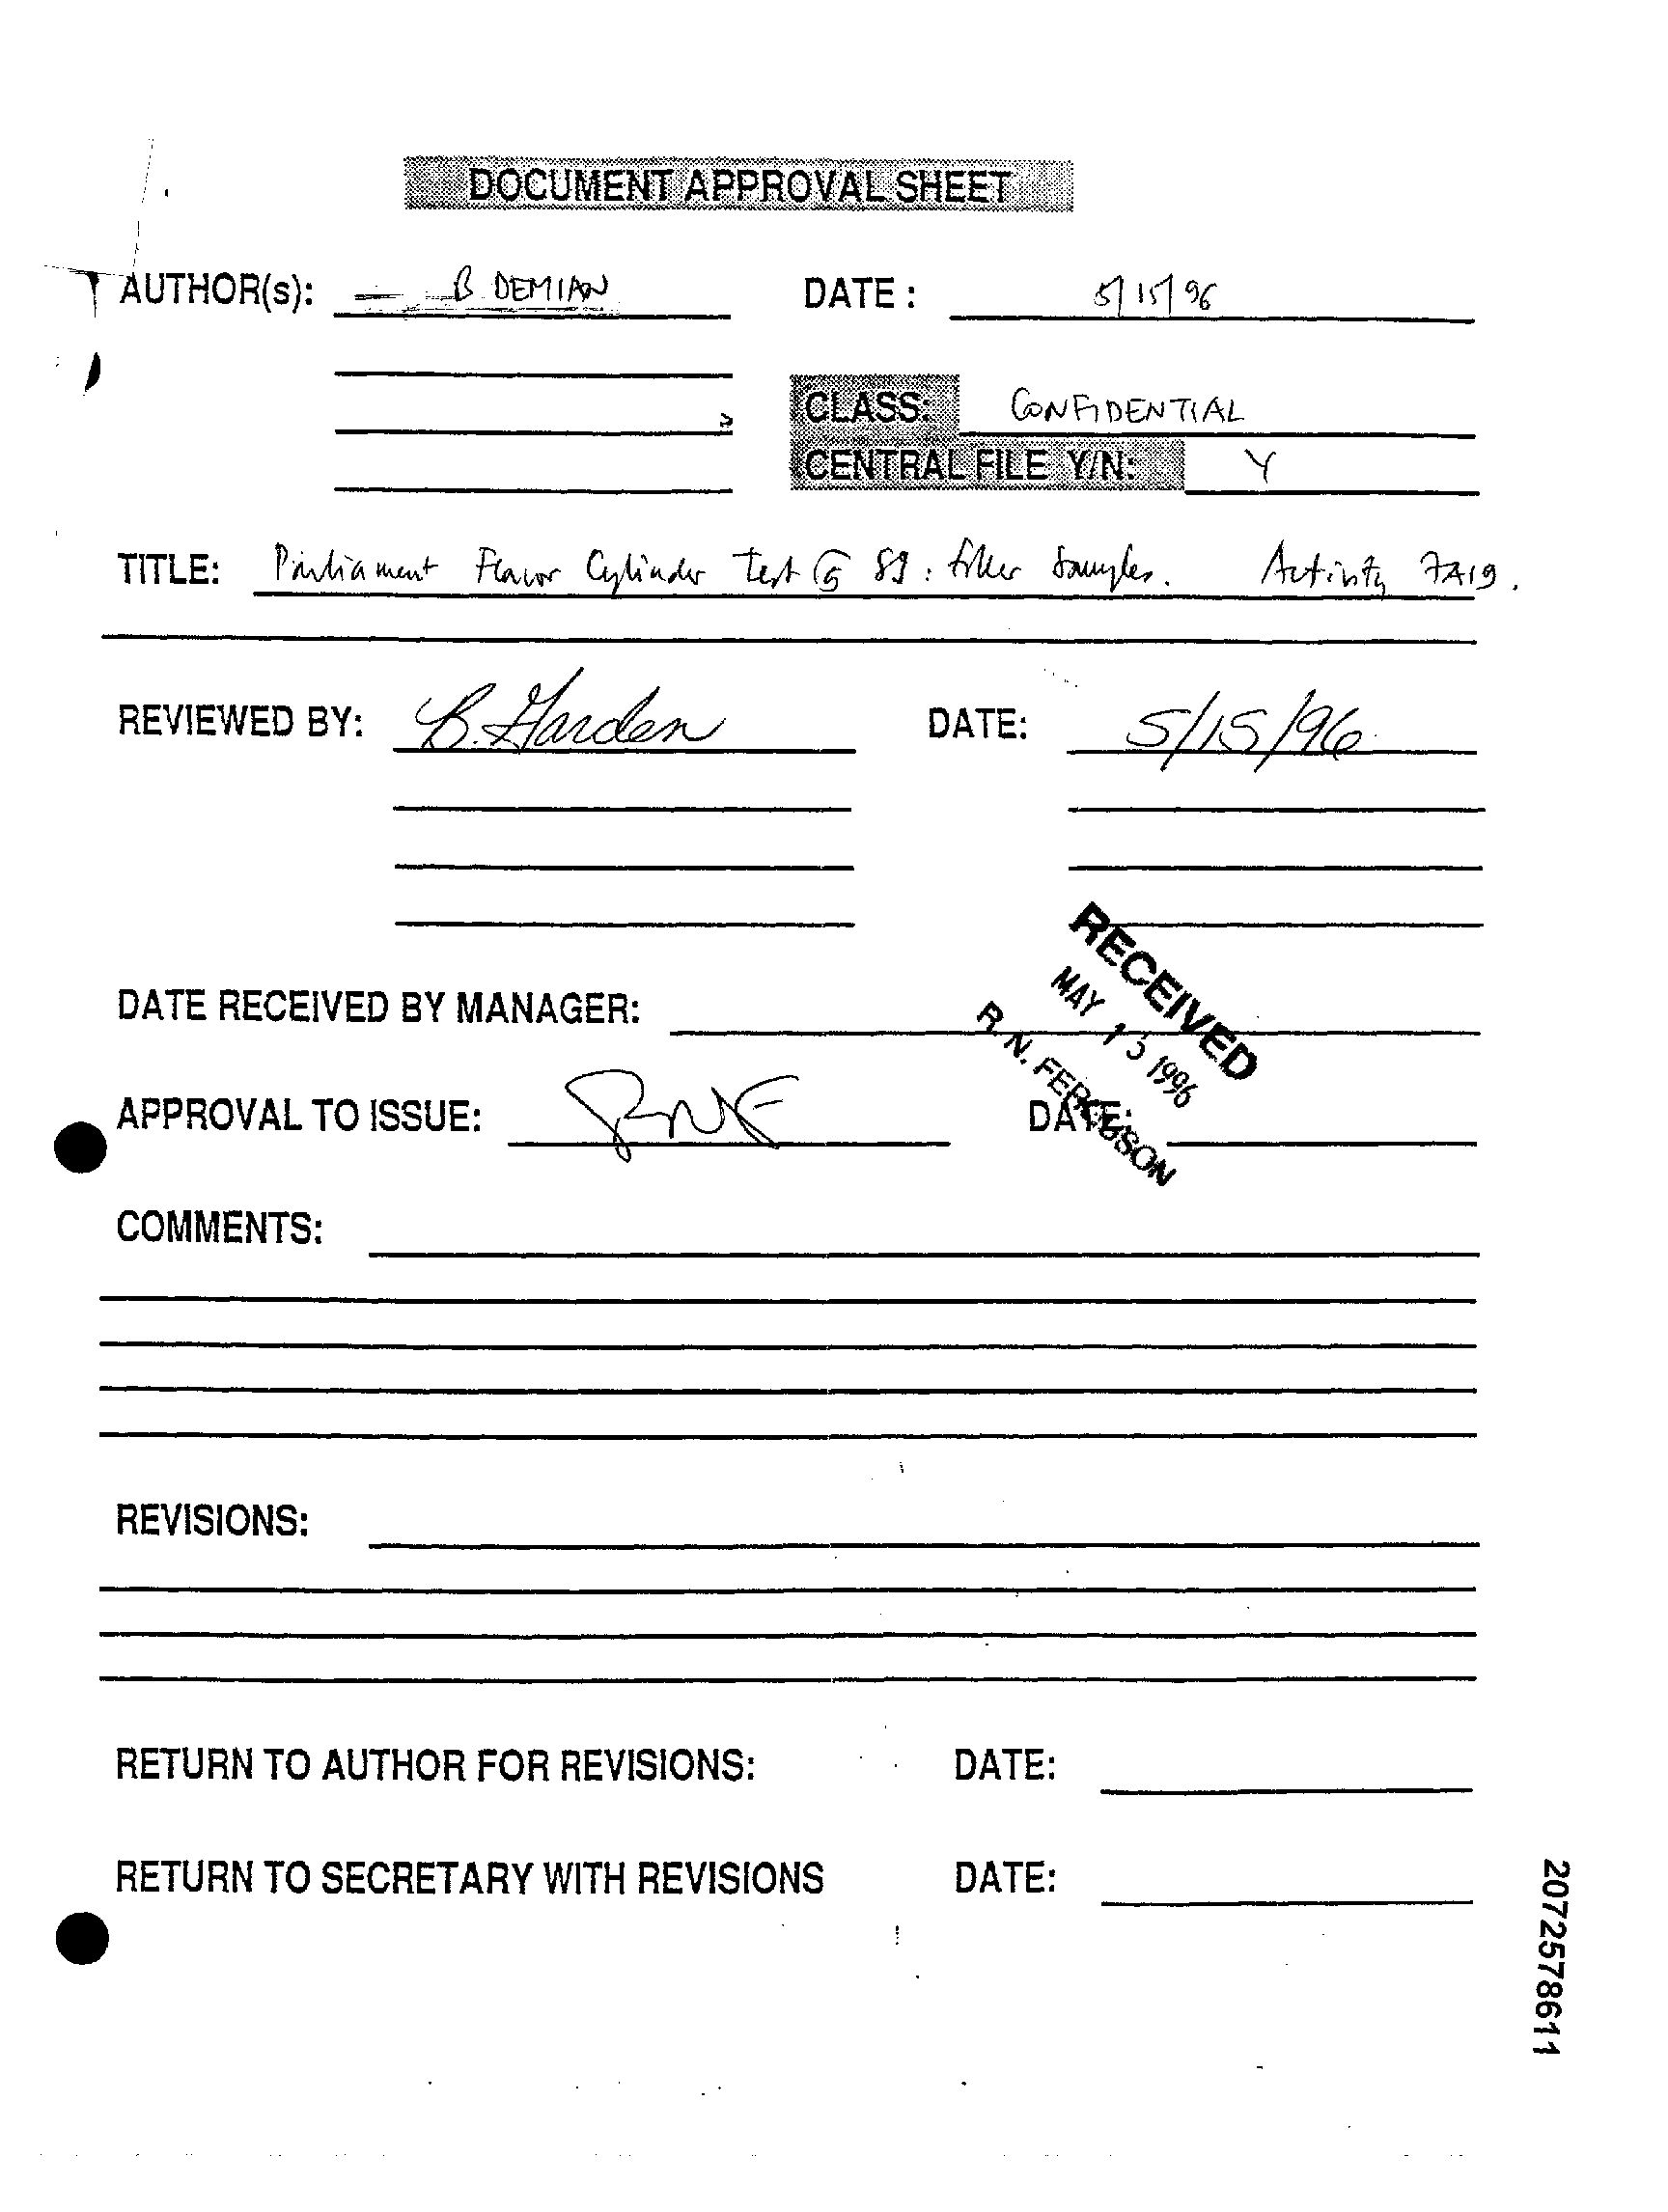 DOCUMENT APPROVAL SHEET
AUTHOR(s): B DEMIAN DATE : 5/15/96
CLASS: CONFIDENTIAL
CENTRAL FILE Y/N: Y
TITLE: Parliament Flavor Cylinder Test @ 89 : filler Samples. Activity 7A19.
REVIEWED BY: B. Harden DATE: 5/15/96
RECEIVED
MAY 15 1996
R. N. FERGUSON
DATE RECEIVED BY MANAGER:
APPROVAL TO ISSUE: RNF DATE:
COMMENTS:
REVISIONS:
RETURN TO AUTHOR FOR REVISIONS: DATE:
RETURN TO SECRETARY WITH REVISIONS DATE:
2072578611